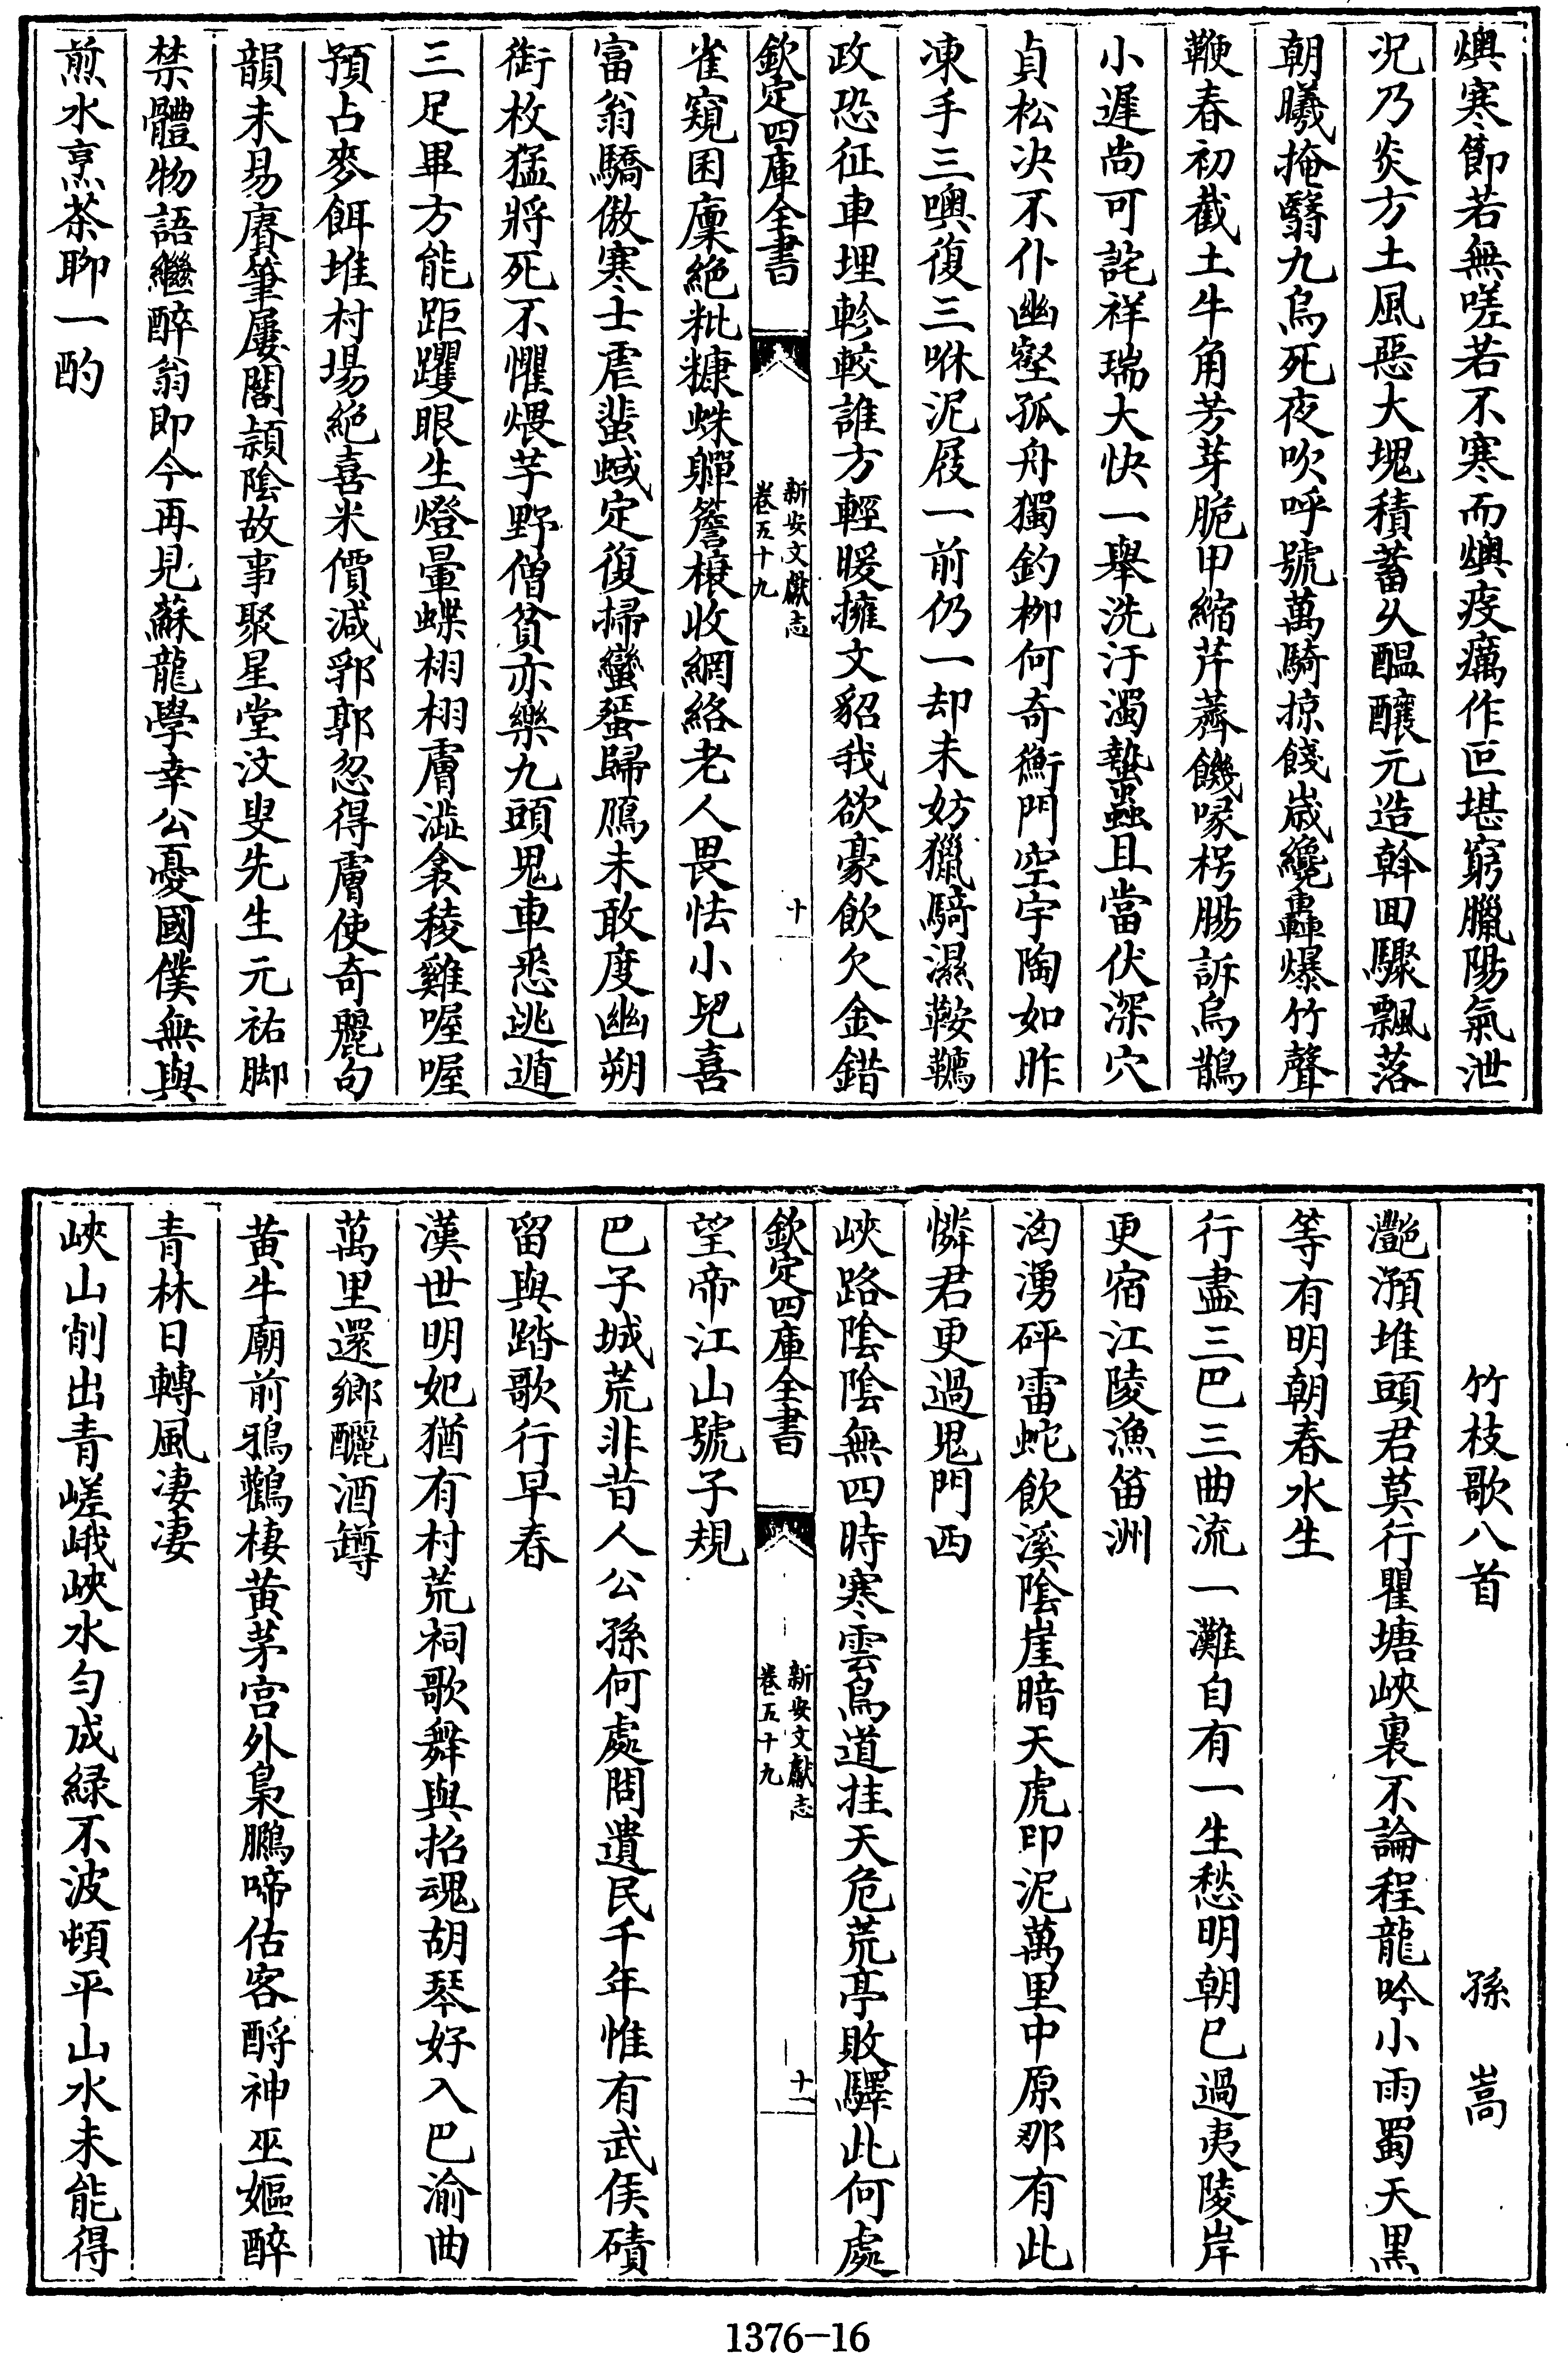 燠寒節若無嗟若不寒而燠疫癘作叵堪窮臘陽氣泄
況乃炎方土風惡大塊積蓄久醖釀元造斡回驟飄落
朝曦掩翳九烏死夜吹呼號萬騎掠餞歲纔轟爆竹聲
鞭春初截土牛角芳芽脆甲縮芹薺饑喙枵腸訴烏鵲
小遲尚可詫祥瑞大快一舉洗汙濁蟄蟲且當伏深穴
貞松决不仆幽壑孤舟獨釣栁何奇衡門空宇陶如昨
凍手三噢復三咻泥屐一前仍一却未妨獵騎濕鞍韉
政恐征車埋軫較誰方輕暖擁文貂我欲豪飲欠金錯
欽定四庫全書
新安文獻志
卷五十九
十
雀窺囷廩絶粃糠蛛嚲簷榱收網絡老人畏怯小兒喜
富翁驕傲寒士虐蜚蜮定復掃蠻蜑歸鴈未敢度幽朔
銜枚猛將死不懼煨芋野僧貧亦樂九頭鬼車悉逃遁
三足畢方能距躍眼生燈暈蝶栩栩膚澁衾稜雞喔喔
預占麥餌堆村場絶喜米價減郛郭忽得膚使奇麗句
韻未易賡筆屢閣潁陰故事聚星堂汶叟先生元祐脚
禁體物語繼醉翁即今再見蘇龍學幸公憂國僕無與
煎水烹茶聊一酌
竹枝歌八首
孫嵩
灔澦堆頭君莫行瞿塘峽裏不論程龍吟小雨蜀天黑
等有明朝春水生
行盡三巴三曲流一灘自有一生愁明朝已過夷陵岸
更宿江陵漁笛洲
洶湧砰雷蛇飲溪陰崖暗天虎印泥萬里中原那有此
憐君更過鬼門西
峽路陰陰無四時寒雲鳥道挂天危荒亭敗驛此何處
欽定四庫全書
新安文獻志
卷五十九
十一
望帝江山號子規
巴子城荒非昔人公孫何處問遺民千年惟有武侯磧
留與踏歌行早春
漢世明妃猶有村荒祠歌舞與招魂胡琴好入巴渝曲
萬里還鄉釃酒罇
黄牛廟前鴉鸛棲黄茅宫外梟鵩啼估客酹神巫嫗醉
青林日轉風凄凄
峽山削出青嵯峨峽水勻成綠不波頓平山水未能得
1376-16